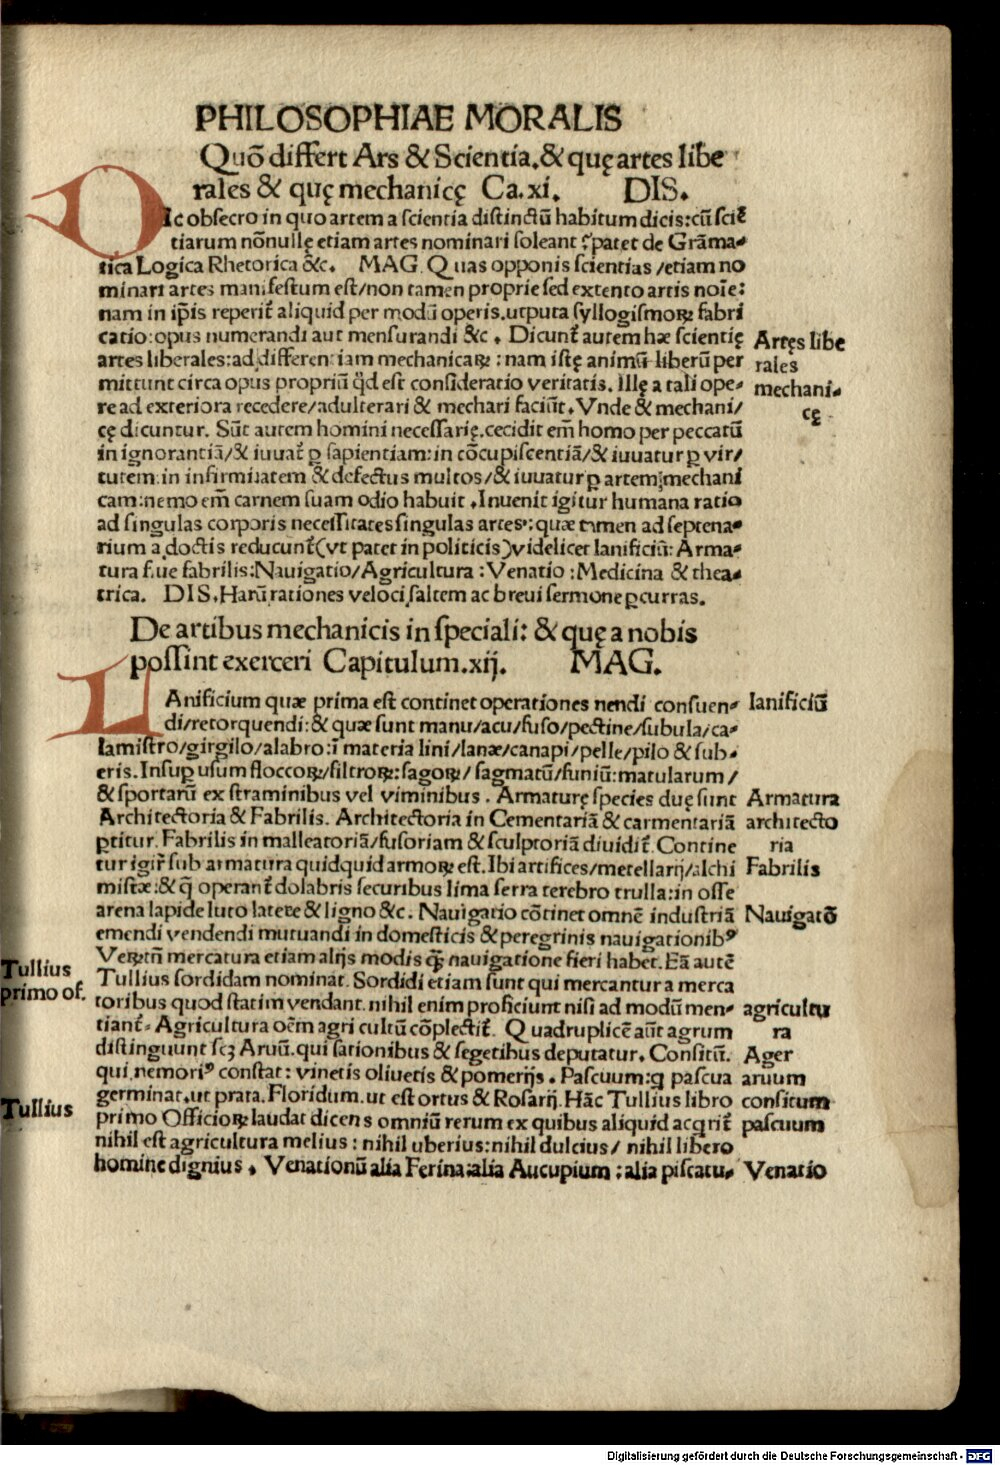 PHILOSOPHIAE MORALIS
Quō differt Ars & Scientia, & quę artes libe
rales & quę mechanicę Ca.xi. DIS.
DIc obsecro in quo artem a scientia distinctū habitum dicis: cū sciē
tiarum nōnullę etiam artes nominari soleant patet de Grāma-
tica Logica Rhetorica &c. MAG. Quas opponis scientias/etiam no
minari artes manifestum est/non tamen proprie sed extento artis noīe:
nam in ip̄is reperit̄ aliquid per modū operis. utputa syllogismoꝝ fabri
catio: opus numerandi aut mensurandi &c. Dicunt̄ autem hæ scientię
artes liberales: ad differentiam mechanicaꝝ: nam istę animū liberū per
mittunt circa opus propriū q̄d est consideratio veritatis. Illę a tali ope-
re ad exteriora recedere/adulterari & mechari faciūt. Vnde & mechani/
cę dicuntur. Sūt autem homini necessarię. cecidit em̄ homo per peccatū
in ignorantiā/& iuuat̄ ꝑ sapientiam: in cōcupiscentiā/& iuuatur ꝑ vir/
tutem: in infirmitatem & defectus multos/& iuuatur ꝑ artem mechani
cam: nemo em̄ carnem suam odio habuit. Inuenit igitur humana ratio
ad singulas corporis necessitates singulas artes: quæ tamen ad septena-
rium a doctis reducunt̄ (vt patet in politicis) videlicet lanificiū: Arma-
tura siue fabrilis: Nauigatio/Agricultura: Venatio: Medicina & thea-
trica. DIS. Harū rationes veloci saltem ac breui sermone ꝑcurras.
Artęs libe
rales
mechani-
cę
De artibus mechanicis in speciali: & quę a nobis
possint exerceri Capitulum.xij. MAG.
LAnificium quæ prima est continet operationes nendi consuen-
di/retorquendi: & quæ sunt manu/acu/fuso/pectine/subula/ca-
lamistro/girgilo/alabro: ī materia lini/lanæ/canapi/pelle/pilo & sub-
eris. Insuꝑ usum floccoꝝ/filtroꝝ: sagoꝝ/sagmatū/funiū: matularum/
& sportarū ex straminibus vel viminibus. Armaturę species duę sunt
Architectoria & Fabrilis. Architectoria in Cementariā & carmentariā
ꝑtitur. Fabrilis in malleatoriā/fusoriam & sculptoriā diuidit̄. Contine
tur igit̄ sub armatura quidquid armoꝝ est. Ibi artifices/metellarij/alchi
mistæ: & q̄ operant̄ dolabris securibus lima serra terebro trulla: in osse
arena lapide luto latere & ligno &c. Nauigatio cōtinet omnē industriā
emendi vendendi mutuandi in domesticis & peregrinis nauigationibꝰ
Veꝝtn̄ mercatura etiam alijs modis q̄ꝫ nauigatione fieri habet. Eā autē
Tullius sordidam nominat. Sordidi etiam sunt qui mercantur a merca
toribus quod statim vendant. nihil enim proficiunt nisi ad modū men-
tiant̄. Agricultura oēm agri cultū cōplectit̄. Quadruplicē aūt agrum
distinguunt scꝫ Aruū. qui sationibus & segetibus deputatur. Consitū.
qui nemoriꝰ constat: vinetis oliuetis & pomerijs. Pascuum: q pascua
germinat. ut prata. Floridum. ut est ortus & Rosarij. Hāc Tullius libro
primo Officioꝝ laudat dicens omniū rerum ex quibus aliquid acqrit̄
nihil est agricultura melius: nihil uberius: nihil dulcius/ nihil libero
homine dignius. Venationū alia Ferina: alia Aucupium: alia piscatu-
lanificiū
Armatura
architecto
ria
Fabrilis
Nauigatō
agricultu
ra
Ager
aruum
consitum
pascuum
Venatio
Tullius
primo of.
Tullius
Digitalisierung gefördert durch die Deutsche Forschungsgemeinschaft - DFG